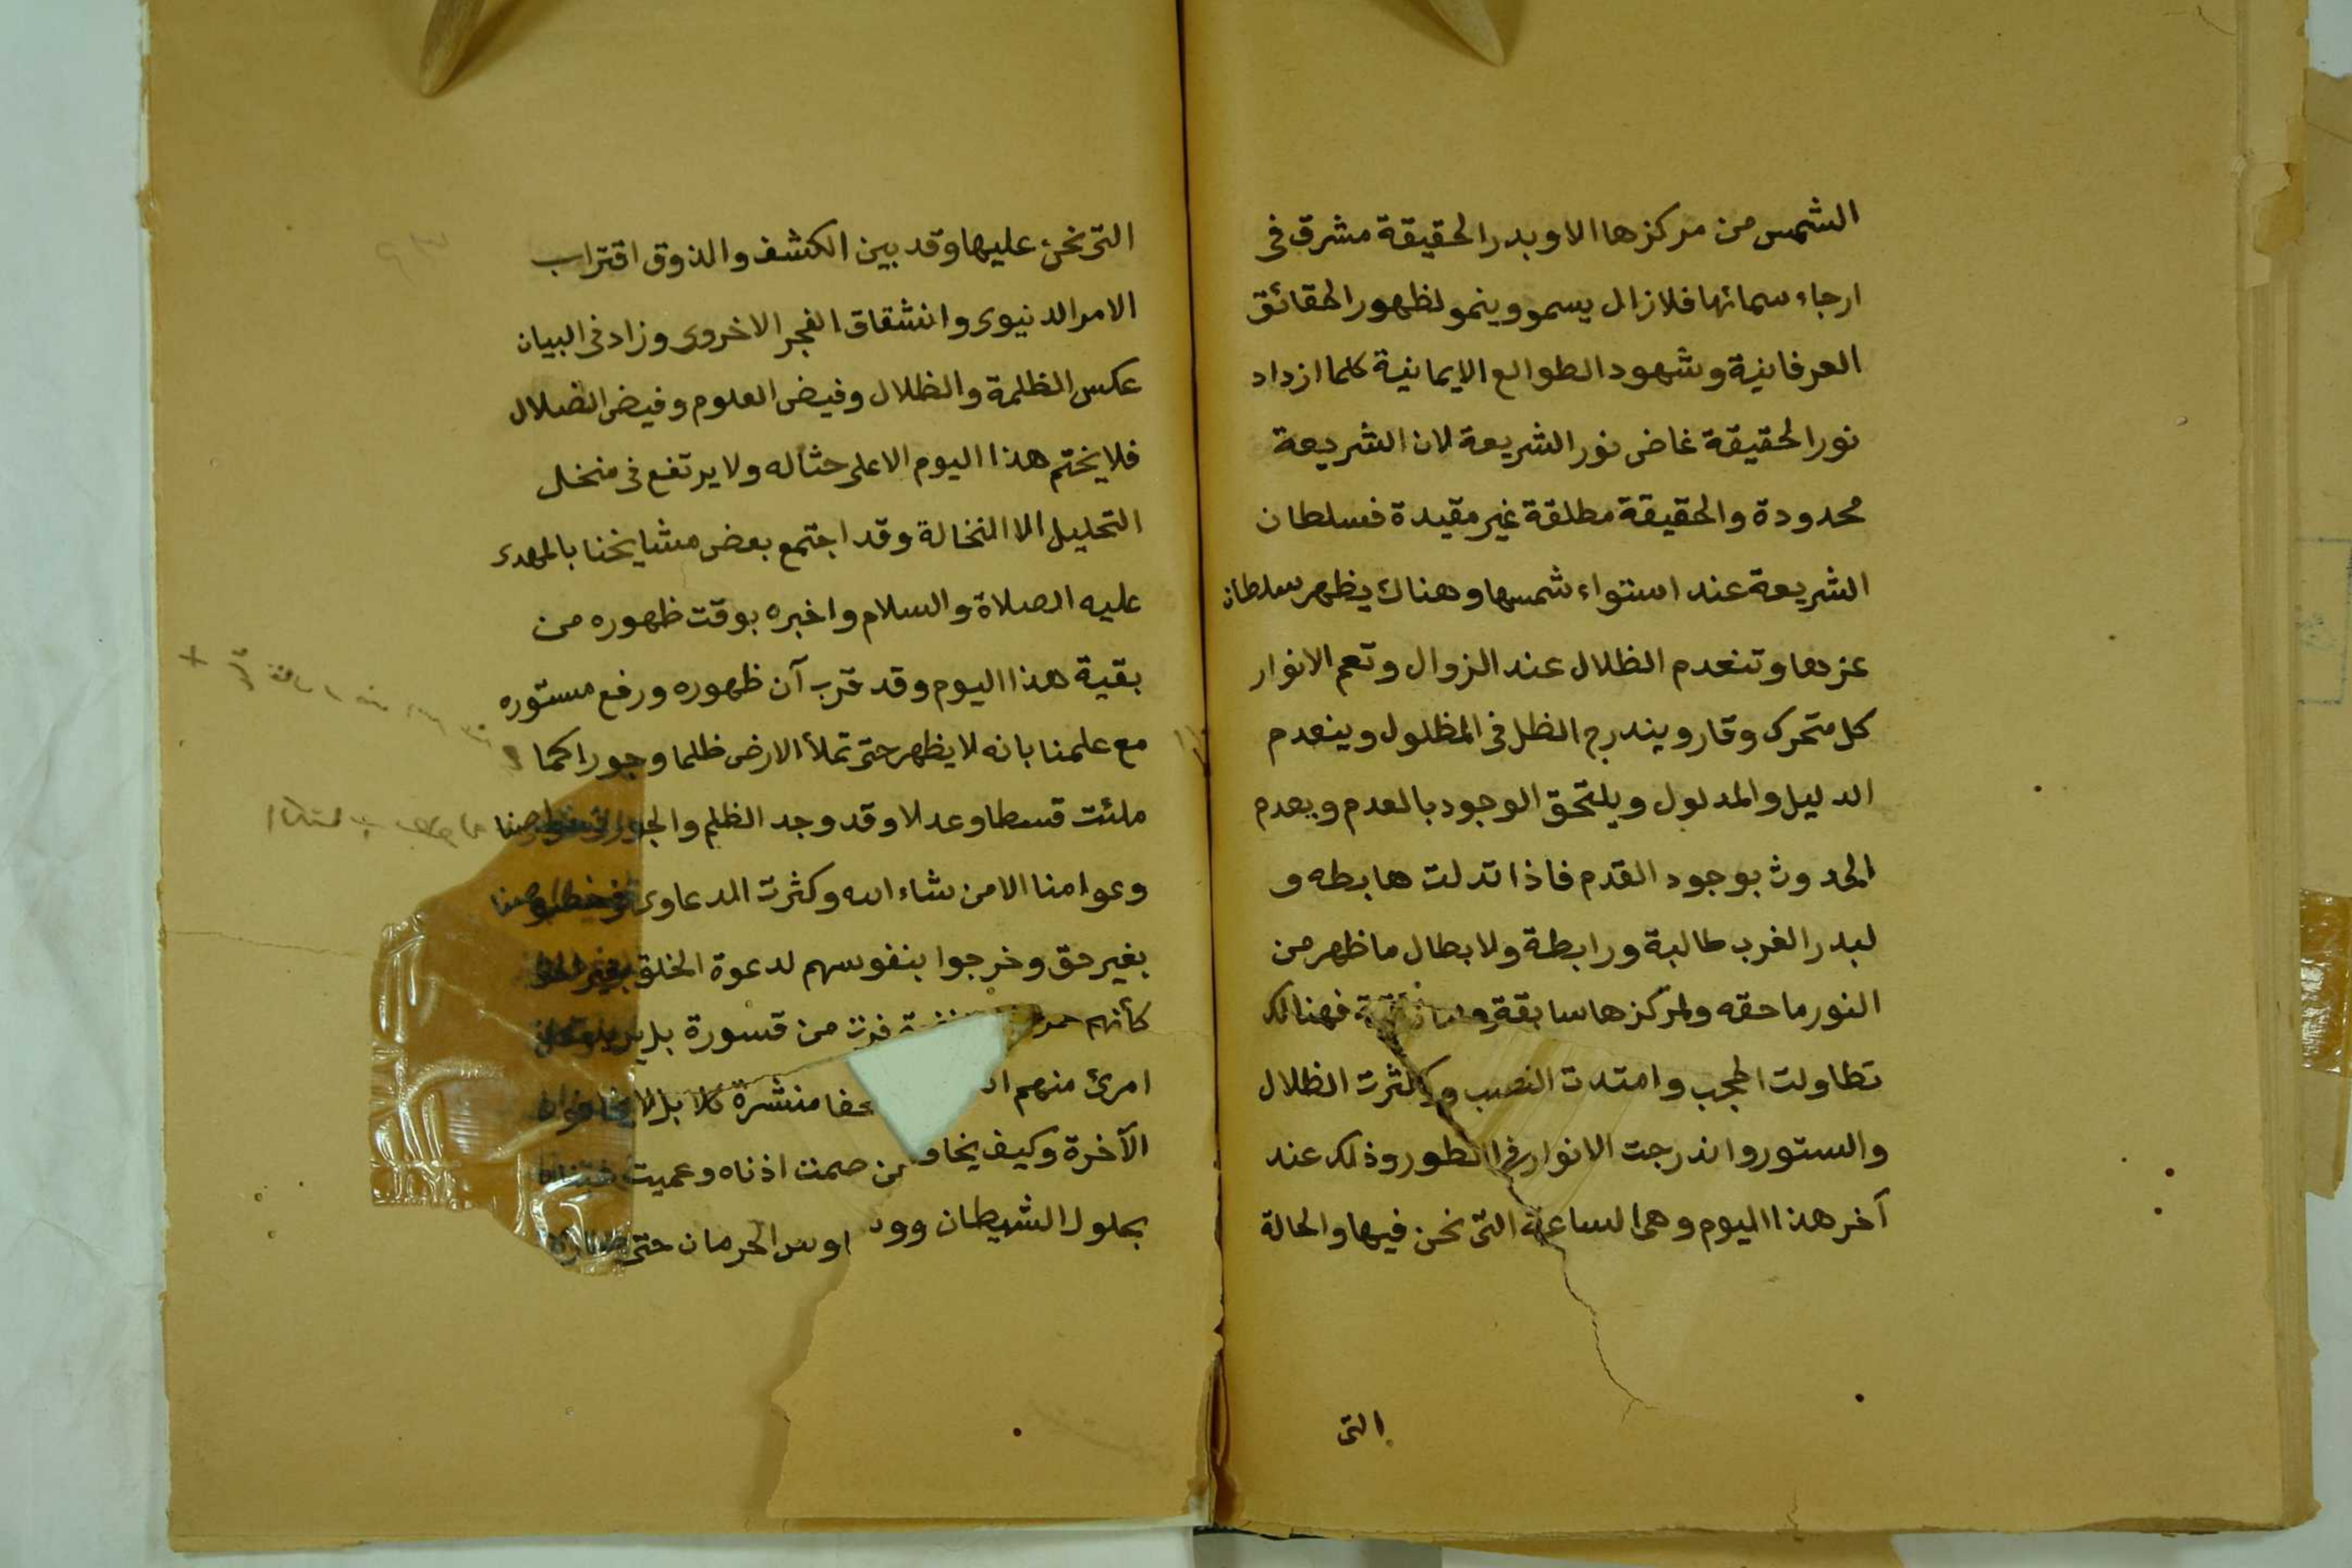 الشمس من مركزها الا وبدر الحقيقة مشرق فى
ارجاء سمائها فلا زال يسمو وينمو لظهور الحقائق
العرفانية وشهود الطوالع الايمانية كلما ازداد
نور الحقيقة غاض نور الشريعة لان الشريعة
محدودة والحقيقة مطلقة غير مقيدة فسلطان
الشريعة عند استواء شمسها وهناك يظهر سلطان
عزها وتنعدم الظلال عند الزوال وتعم الانوار
كل متحرك وقار ويندرج الظل فى المظلول وينعدم
الدليل والمدلول ويلتحق الوجود بالعدم ويعدم
الحدوث بوجود القدم فاذا تدلت هابطه و
لبدر الغرب طالبة ورابطة ولابطال ما ظهر من
النور ماحقه ولمركزها سابقة فهنالك
تطاولت الحجب وامتدت النصب وكثرت الظلال
والستور واندرجت الانوار فى الطور وذلك عند
آخر هذا اليوم وهى الساعة التى نحن فيها والحالة
التى
التى نحن عليها وقد بين الكشف والذوق اقتراب
الامر الدنيوى وانشقاق الفجر الاخروى وزاد فى البيان
عكس الظلمة والظلال وفيض العلوم وفيض الضلال
فلا يختم هذا اليوم الا على حثاله ولا يرتفع فى منخل
التحليل الا النخالة وقد اجتمع بعض مشايخنا بالمهدى
عليه الصلاة والسلام واخبره بوقت ظهوره من
بقية هذا اليوم وقد قرب آن ظهوره ورفع مستوره
مع علمنا بانه لا يظهر حتى تملأ الارض ظلما وجورا كما
ملئت قسطا وعدلا وقد وجد الظلم والجور فى خواصنا
وعوامنا الا من شاء الله وكثرت الدعاوى
بغير حق وخرجوا بنفوسهم لدعوة الخلق
كأنهم حمر فرت من قسورة بل يريد كل
امرئ منهم منشرة كلا بل لا يخافون
الآخرة وكيف يخاف من صمت اذناه وعميت
بحلول الشيطان الحرمان حتى